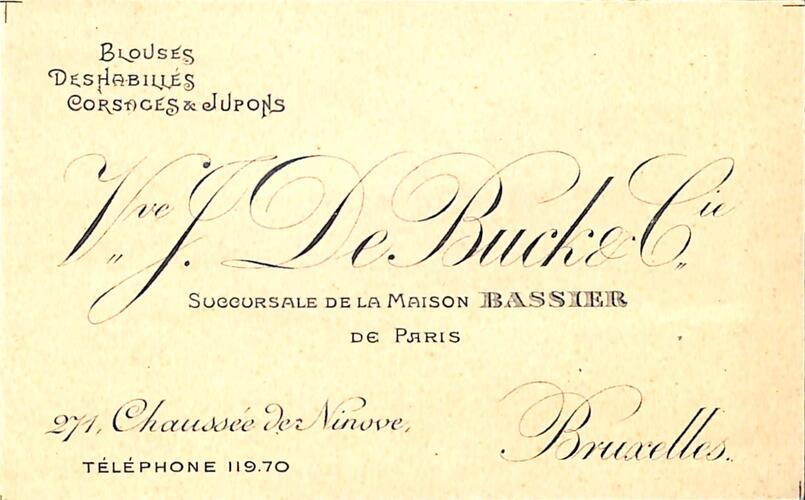 BLOUSES
DESHABILLÉS
CORSAGES & JUPONS
Vve J. De Buck & Cie
SUCCURSALE DE LA MAISON BASSIER
DE PARIS
271, Chaussée de Ninove,
Bruxelles.
TÉLÉPHONE 119.70